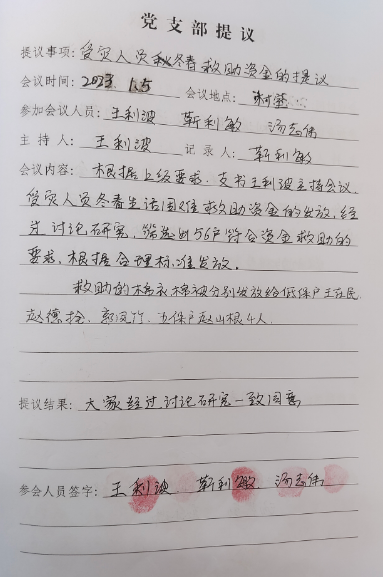 党支部提议
提议事项：受灾人员秋冬春救助资金的提议
会议时间：2023.1.5 会议地点：村室
参加会议人员：王利波 靳利敏 汤志伟
主持人：王利波 记录人：靳利敏
会议内容：根据上级要求，支书王利波主持会议，
受灾人员冬春生活困难救助资金的发放，经
过讨论研究，筛选出56户符合资金救助的
要求，根据合理标准发放。
救助的棉衣棉被分别发放给低保户王在民
赵德拴、郭凤竹、五保户赵山根4人
提议结果：大家经过讨论研究一致同意
参会人员签字：王利波 靳利敏 汤志伟